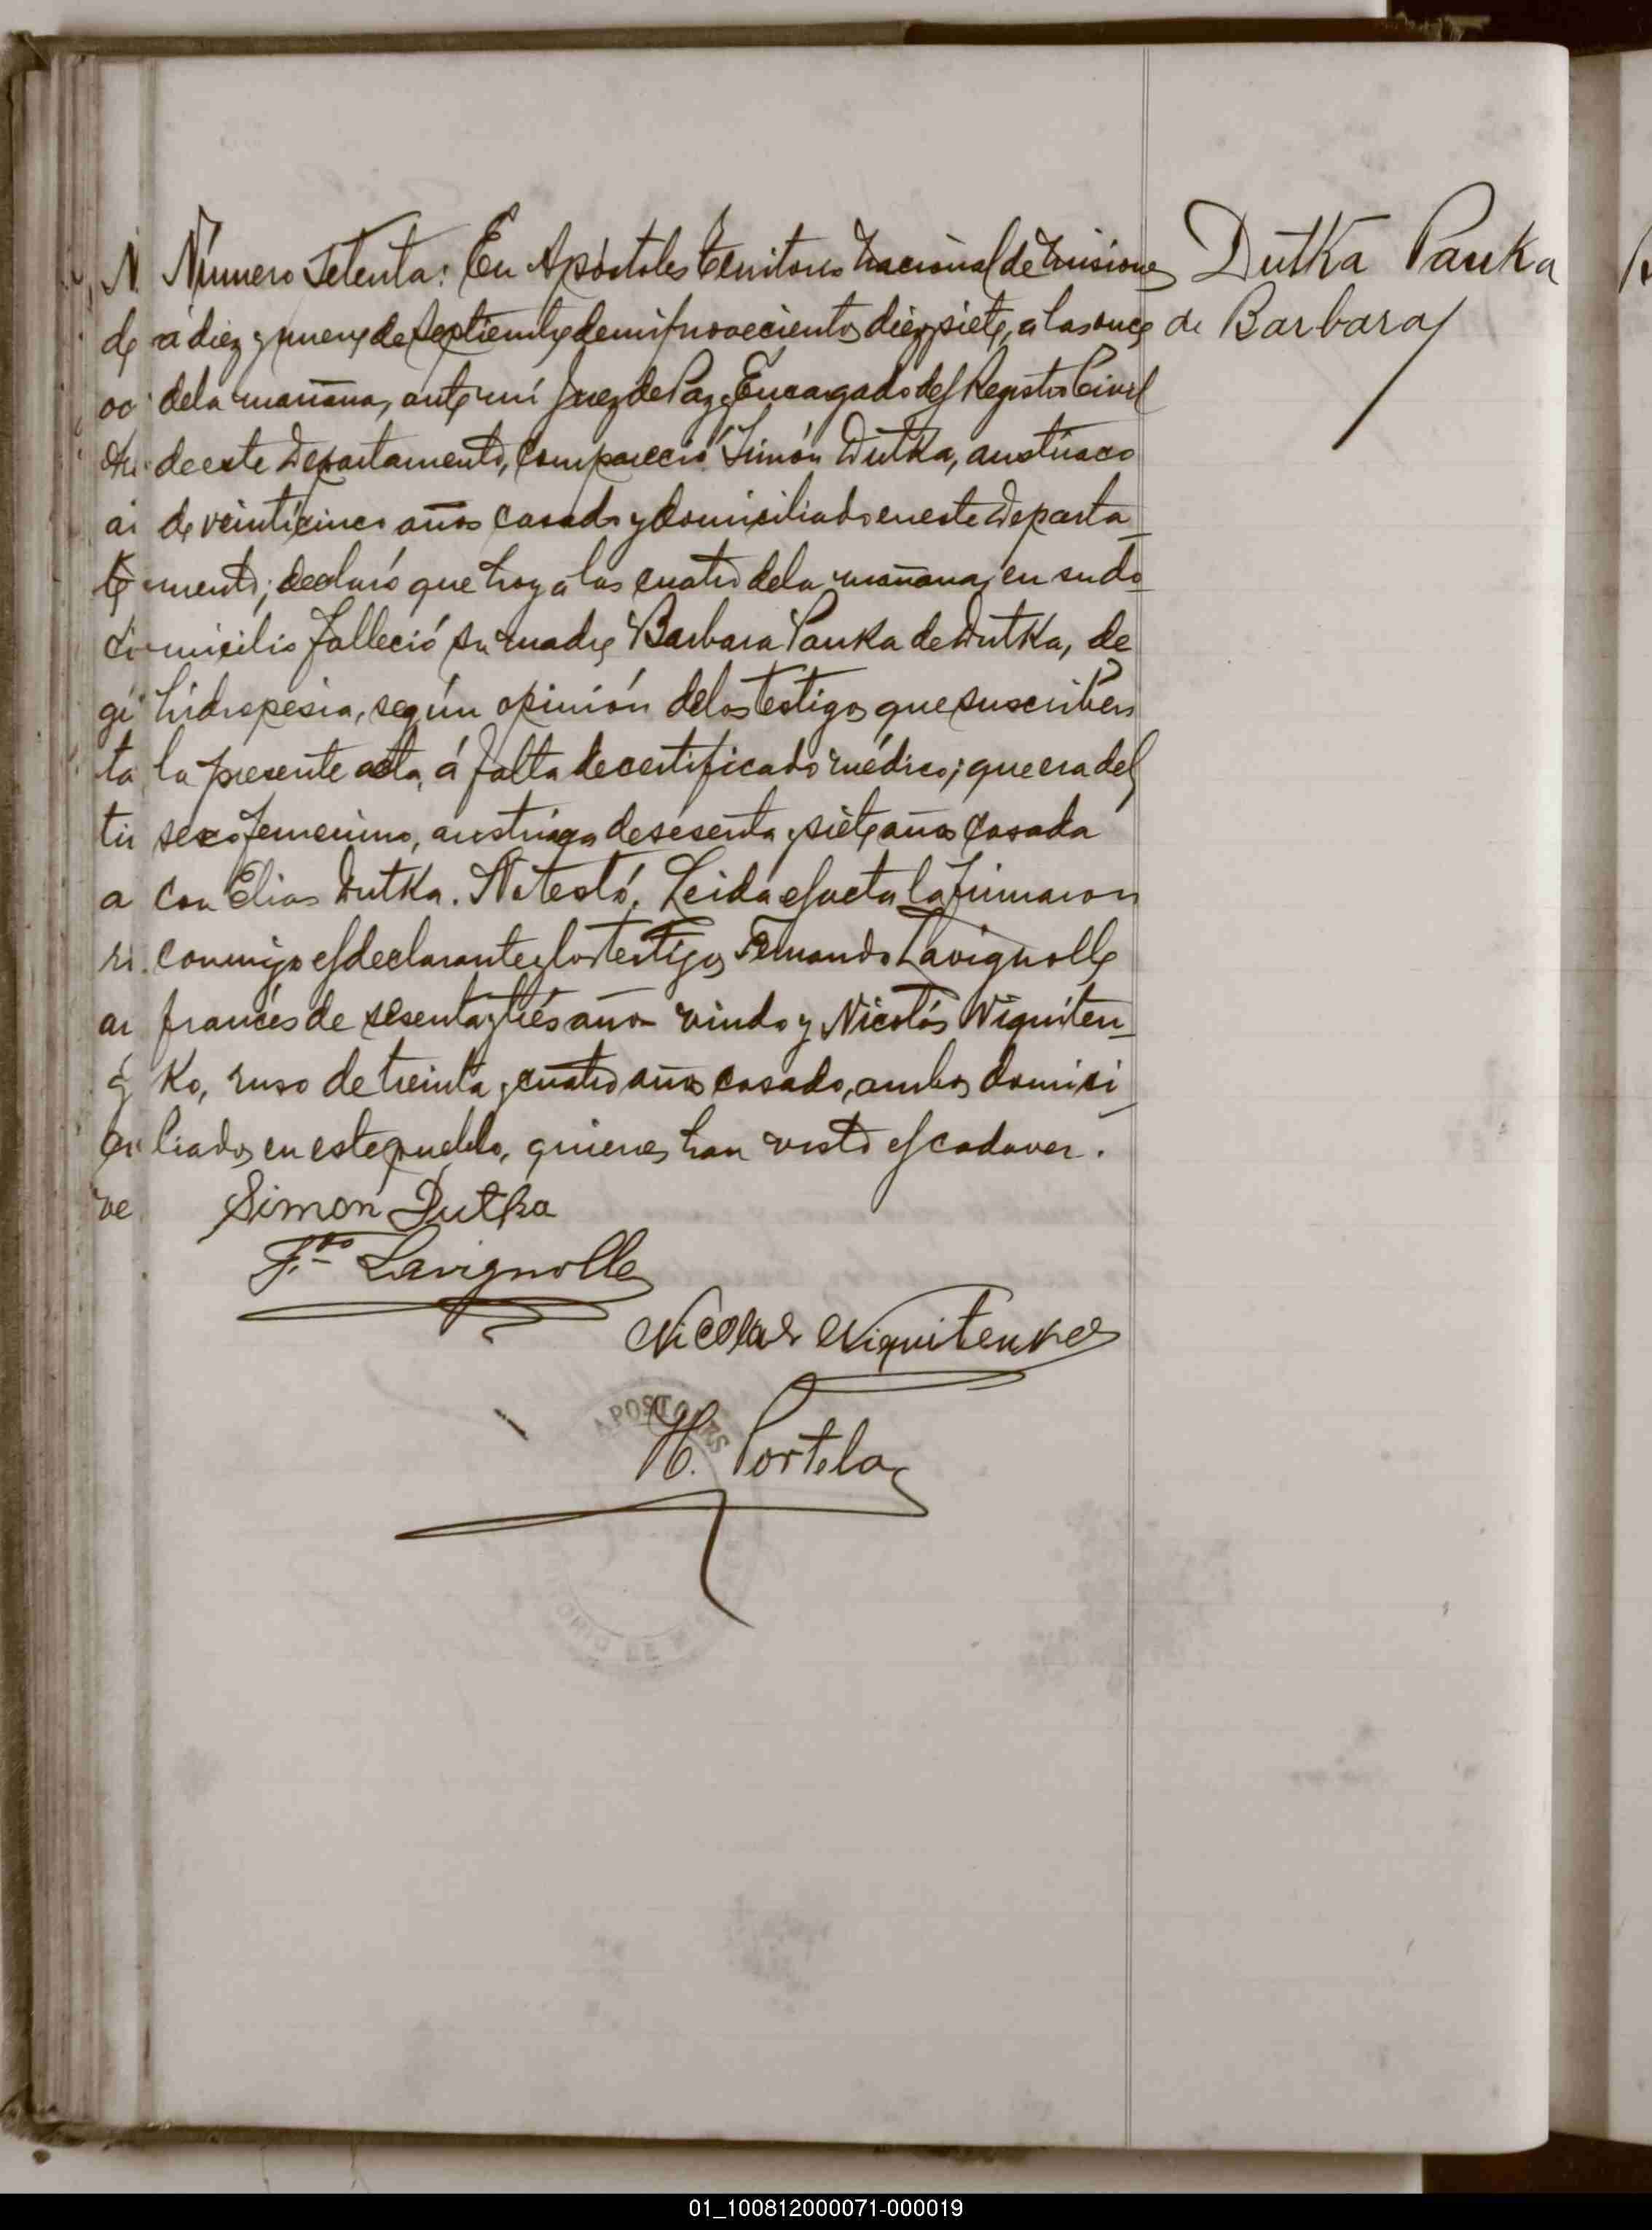 Dutka Pauka
de Barbara
Número Setenta: En Apóstoles Territorio Nacional de Misiones
á diez y nueve de Septiembre de mil novecientos diez y siete, a las once
de la mañana, ante mí Juez de Paz y Encargado del Registro Civil
de este Departamento, compareció Simón Dutka, austriaco
de veinticinco años casado y domiciliado en este Departa-
mento; declaró que hoy á las cuatro de la mañana, en su do-
micilio falleció su madre Barbara Pauka de Dutka, de
hidropesia, según opinión de los testigos que suscriben
la presente acta, á falta de certificado médico; que era del
sexo femenino, austriaca de sesenta y siete años casada
con Elias Dutka. No testó. Leida el acta la firmaron
conmigo el declarante y los testigos Fernando Lavignolle
francés de sesenta y trés años viudo y Nicolás Niquiten-
ko, ruso de treinta y cuatro años casado, ambos domici-
liados en este pueblo, quienes han visto el cadaver.
Simon Dutka
F.do Lavignolle
Nicolas Niquitenko
APOSTOLES
H. Portela
01_100812000071-000019